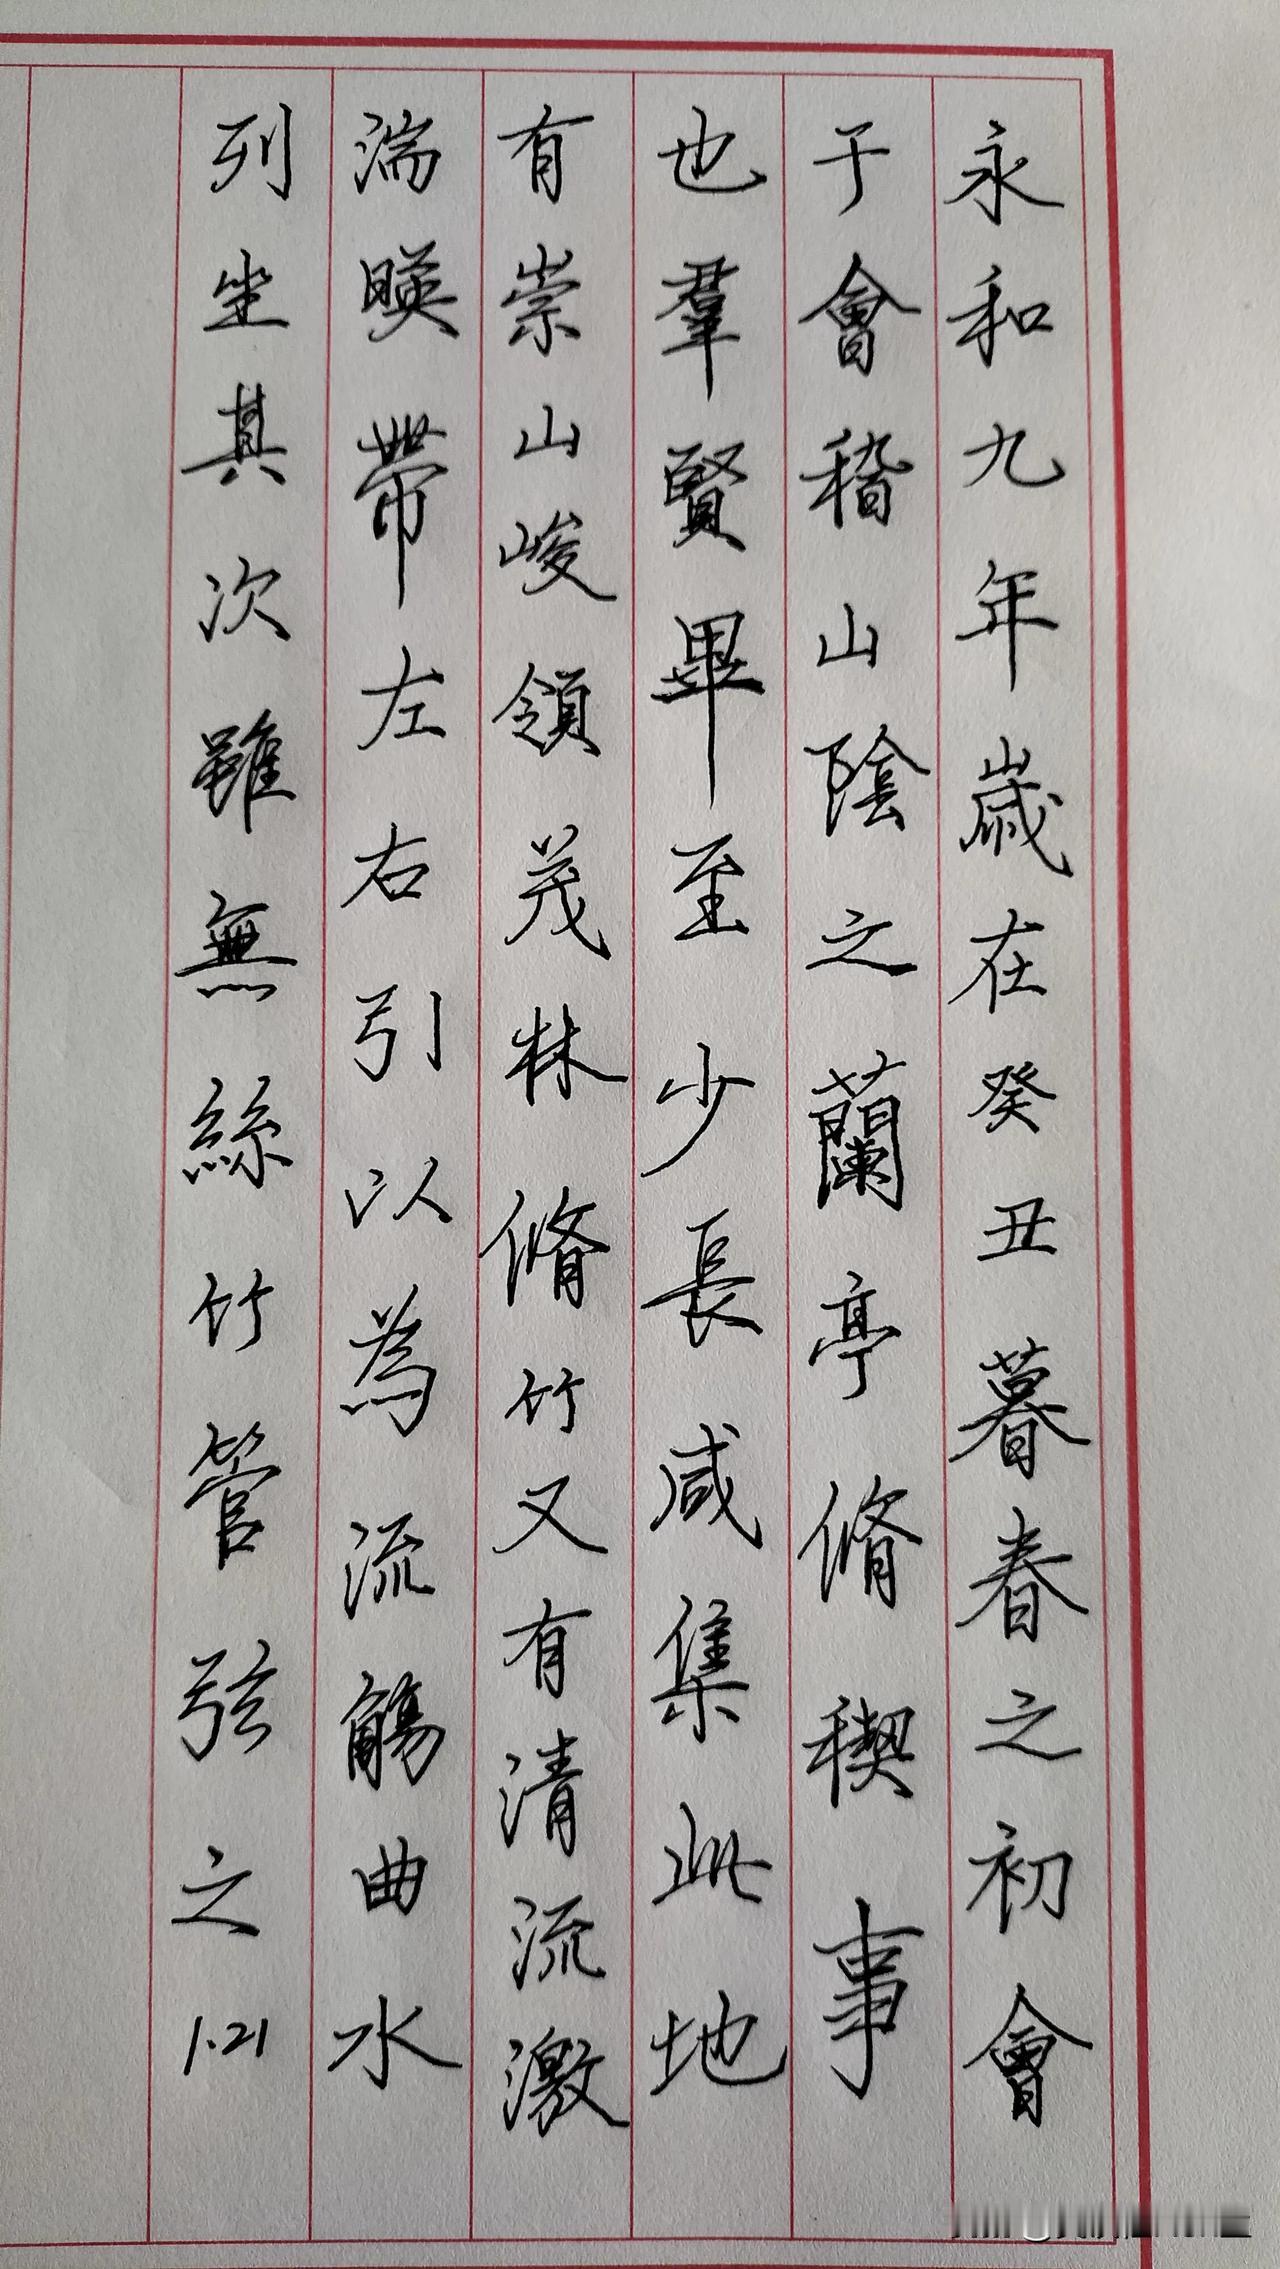 永和九年歲在癸丑暮春之初會
于會稽山陰之蘭亭脩稧事
也羣賢畢至少長咸集此地
有崇山峻領茂林脩竹又有清流激
湍暎帶左右引以為流觴曲水
列坐其次雖無絲竹管弦之
1.21